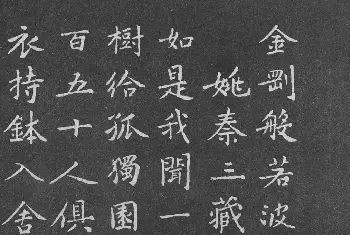 金剛般若波
姚秦三藏
如是我聞一
樹給孤獨園
百五十人俱
衣持鉢入舍